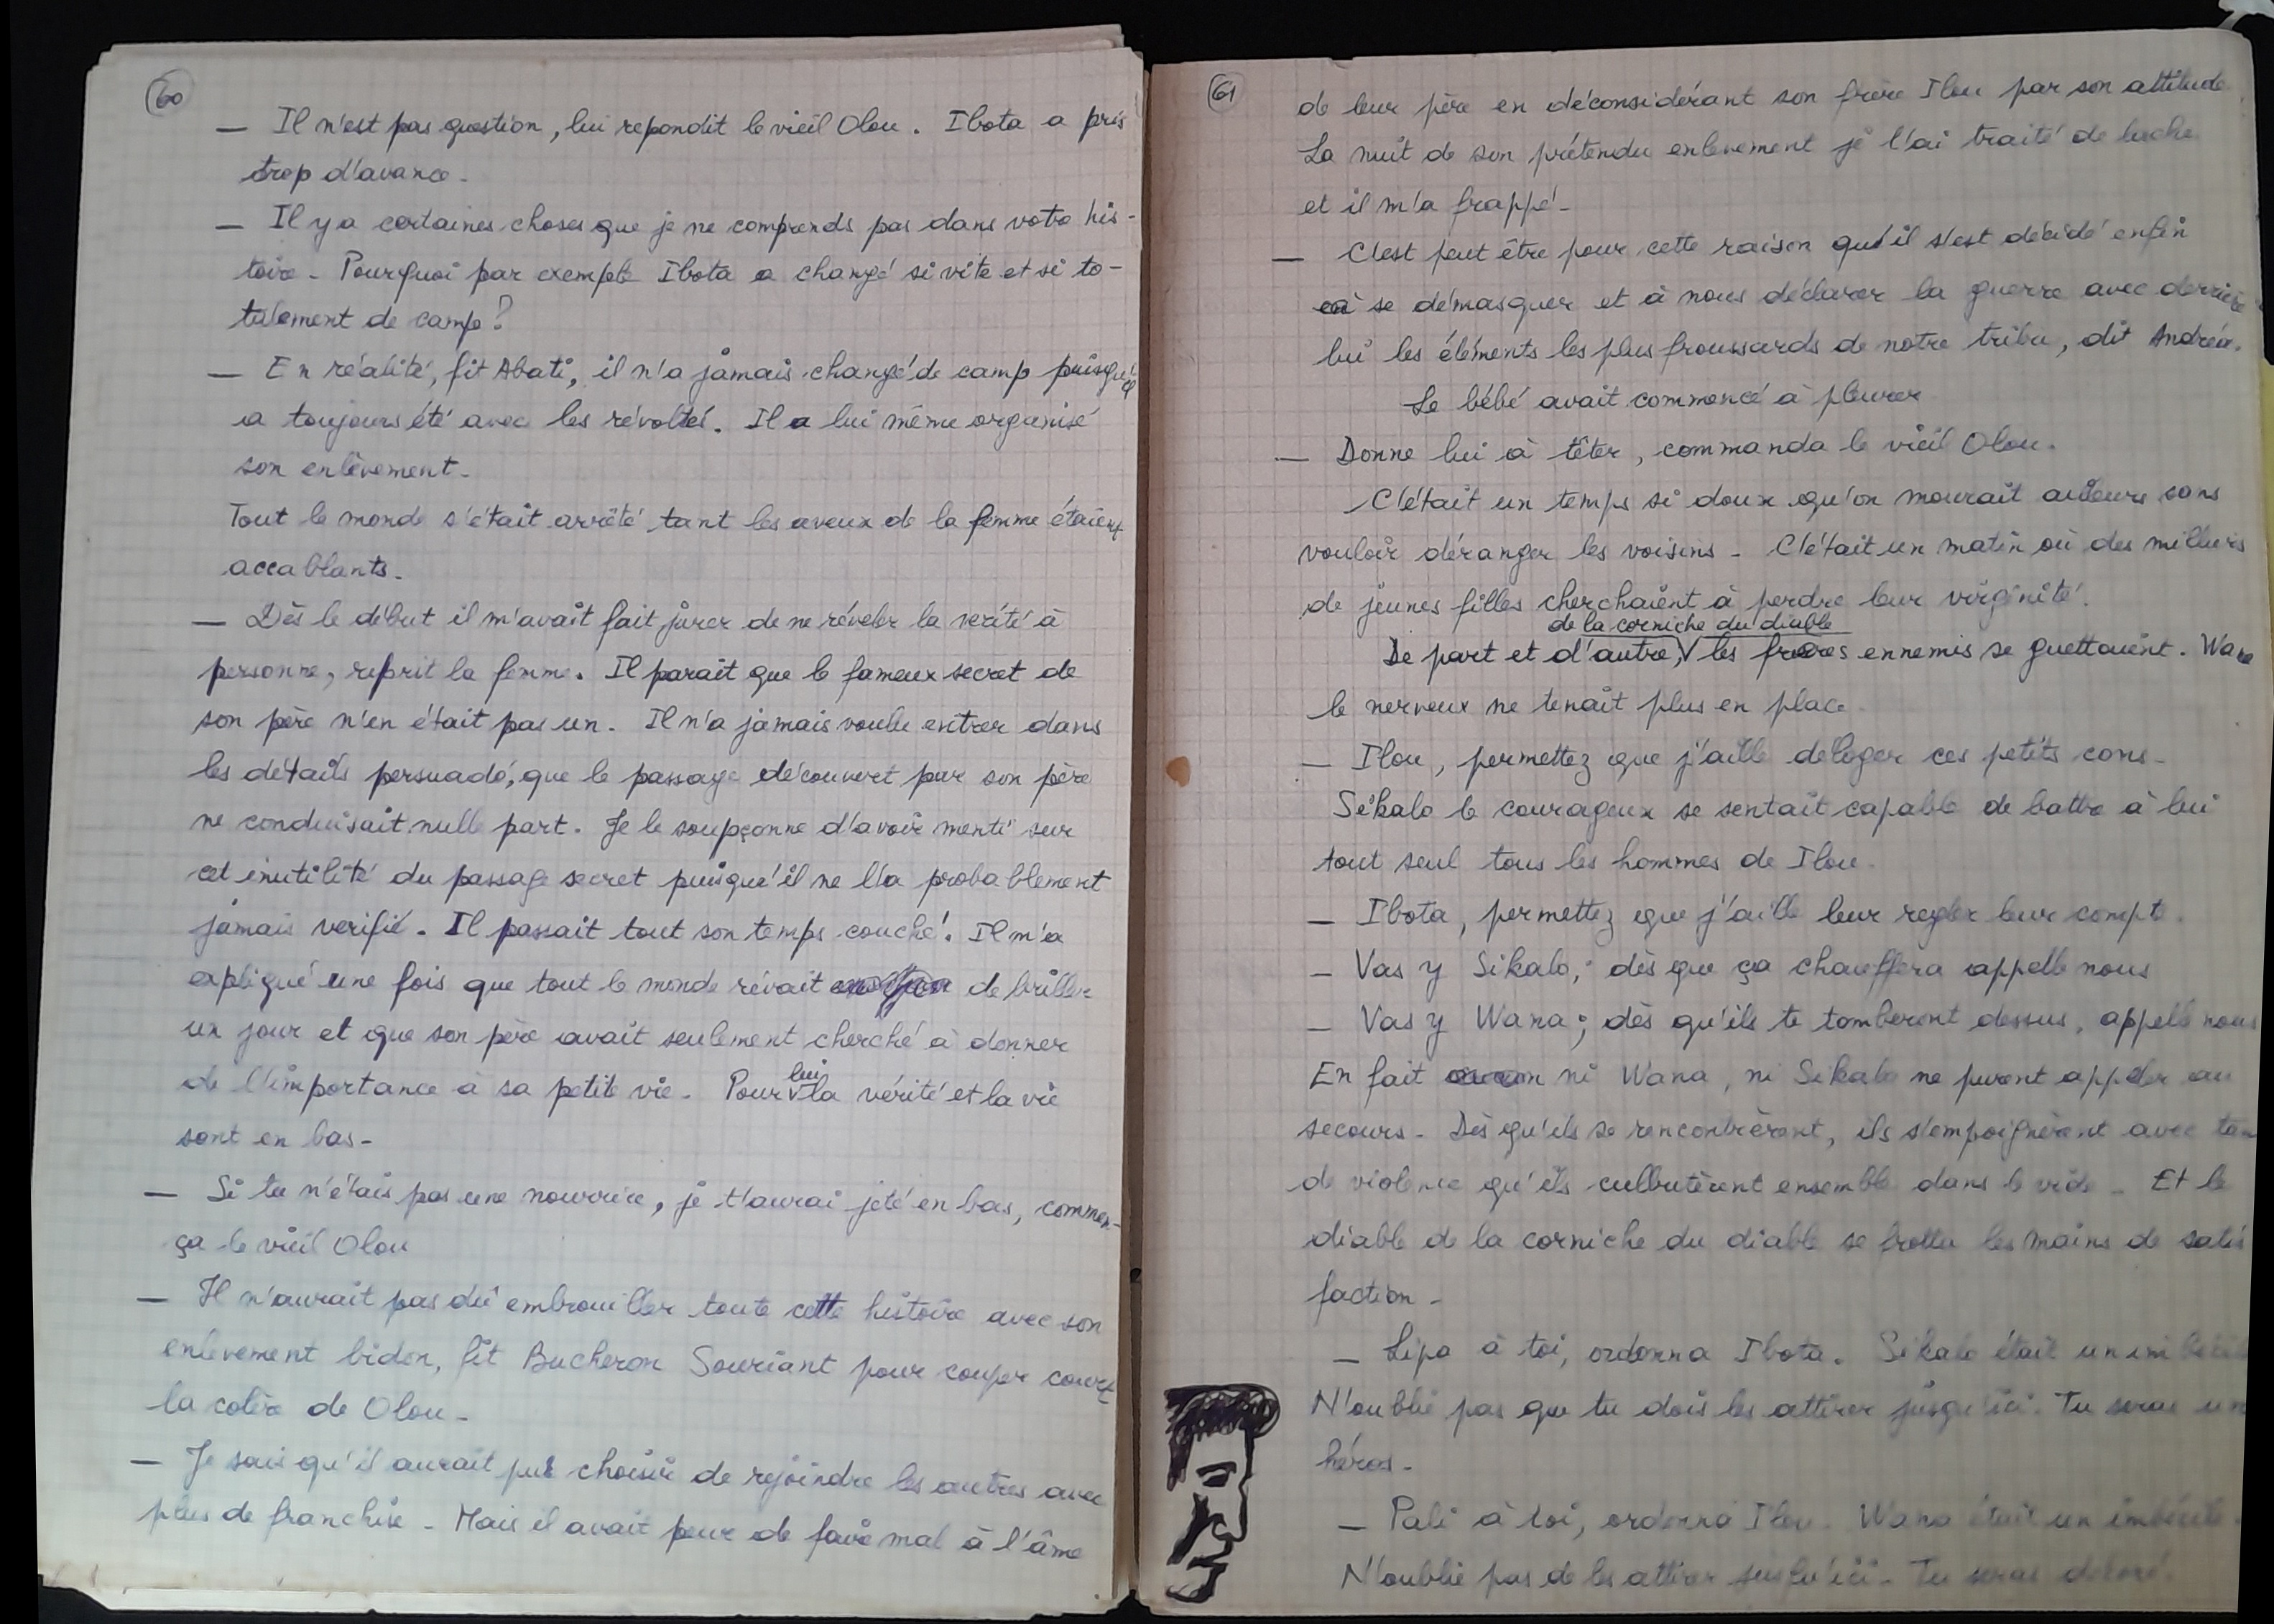 60
— Il n'est pas question, lui repondit le vieil Olou. Ibota a pris
trop d'avance -
— Il y a certaines choses que je ne comprends pas dans votre his-
toire - Pourquoi par exemple Ibota a changé si vite et si to-
talement de camp ?
— En réalité, fit Abati, il n'a jamais changé de camp puisqu'il
a toujours été avec les révoltés. Il a lui même organisé
son enlèvement -
Tout le monde s'était arrêté tant les aveux de la femme étaient
accablants -
— Dès le début il m'avait fait jurer de ne révéler la verité à
personne, reprit la femme. Il parait que le fameux secret de
son père n'en était pas un. Il n'a jamais voulu entrer dans
les détails persuadé, que le passage découvert par son père
ne conduisait nulle part. Je le soupçonne d'avoir menti sur
cet inutilité du passage secret puisqu'il ne l'a probablement
jamais verifié. Il passait tout son temps couché. Il m'a
expliqué une fois que tout le monde rêvait de briller
un jour et que son père avait seulement cherché à donner
de l'importance à sa petite vie - Pour lui la vérité et la vie
sont en bas -
— Si tu n'étais pas une nourrice, je t'aurai jeté en bas, commen-
ça le vieil Olou
— Il n'aurait pas dû embrouiller toute cette histoire avec son
enlevement bidon, fit Bucheron Souriant pour couper court
la colère de Olou -
— Je sais qu'il aurait pu choisir de rejoindre les autres avec
plus de franchise - Mais il avait peur de faire mal à l'âme
61
de leur père en déconsidérant son frère Ilou par son attitude.
La nuit de son prétendu enlevement je l'ai traité de lache
et il m'a frappé -
— C'est peut être pour cette raison qu'il s'est décidé enfin
à se démasquer et à nous déclarer la guerre avec derrière
lui les éléments les plus froussards de notre tribu, dit Andréa.
Le bébé avait commencé à pleurer
— Donne lui à têter, commanda le vieil Olou.
C'était un temps si doux qu'on mourait ailleurs sans
vouloir déranger les voisins - C'était un matin où des milliers
de jeunes filles cherchaient à perdre leur virginité.
De part et d'autre, de la corniche du diable les freres ennemis se guettaient. Wana
le nerveux ne tenait plus en place
— Ilou, permettez que j'aille deloger ces petits cons -
Sikalo le courageux se sentait capable de battre à lui
tout seul tous les hommes de Ilou.
— Ibota, permettez que j'aille leur regler leur compte.
— Vas y Sikalo, dès que ça chauffera appelle nous
— Vas y Wana ; dès qu'ils te tomberont dessus, appelle nous
En fait ni Wana, ni Sikalo ne purent appeler au
secours - Dès qu'ils se rencontrèrent, ils s'empoignèrent avec tant
de violence qu'ils culbutèrent ensemble dans le vide - Et le
diable de la corniche du diable se frotta les mains de satis
faction -
— Lipa à toi, ordonna Ibota. Sikalo était un imbécile
N'oublie pas que tu dois les attirer jusqu'ici. Tu seras un
héros -
— Pali à toi, ordonna Ilou. Wana était un imbécile.
N'oublie pas de les attirer jusqu'ici - Tu seras décoré.